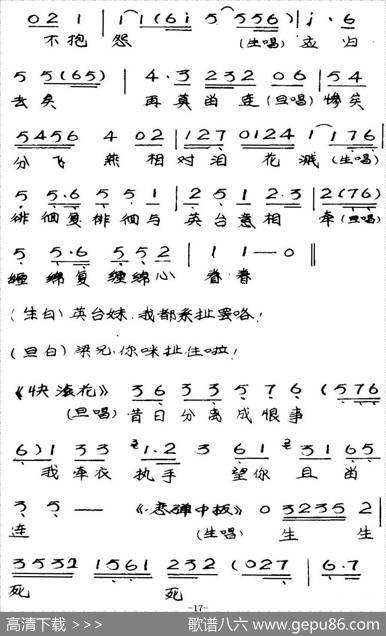 0 2 1 | 1 1 (6 i 5 5 5 6) | i · 6
不抱 怨 (生唱) 应 归
5 5 (6 5) | 4 · 3 2 3 2 0 6 | 5 4
去矣 再莫 当 连 (旦唱) 惨矣
5 4 5 6 4 0 2 | 1 2 7 0 1 2 4 1 1 7 6 |
分飞 燕 相 对泪 花 溅 (生唱)
5 5 · 6 5 5 1 | 2 5 1 2 · 3 | 2 (7 6)
徘 徊复 徘徊与 英台意相 牵 (旦唱)
5 5 · 6 5 5 2 | 1 1 — 0 ‖
缠 绵复 缠绵心 眷 眷
(生白) 英台妹,我都系扯罢咯!
(旦白) 梁兄,你咪扯住啦!
《快滚花》 3 6 3 3 5 7 6 (5 7 6
(旦唱) 昔日分离成恨事
6) 1 3 3 1 · 2 3 6 1 3 1 6 5
我 牵衣 执手 望你 且 当
3 5 — 《恋弹中板》 0 3 2 3 5 2 |
连 (生唱) 生 生
3 5 3 2 1 5 6 1 2 3 2 (0 2 7 | 6 · 7
死 死
-17-
高清下载 >>>
歌谱八六 www.gepu86.com